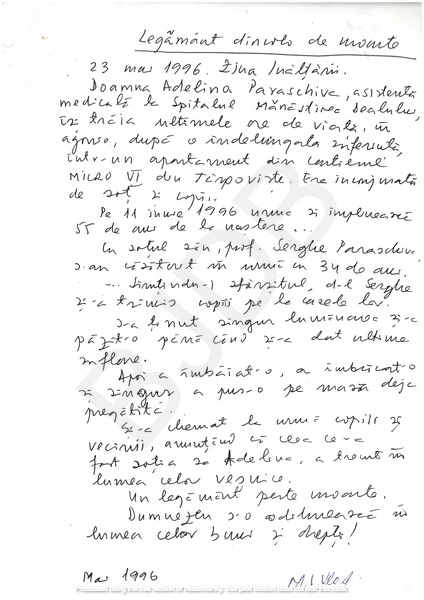 Legământ dincolo de moarte
23 mai 1996. Ziua Înălțării.
Doamna Adelina Paraschiva, asistentă
medicală la Spitalul Mănăstirea Dealului,
își trăia ultimele ore de viață, în
agonie, după o îndelungată suferință,
într-un apartament din cartierul
MICRO VI din Târgoviște. Era înconjurată
de soț și copii.
Pe 11 iunie 1996 urma să împlinească
55 de ani de la naștere...
Cu soțul său, prof. Serghe Paraschiva
s-au căsătorit în urmă cu 34 de ani.
... Simțindu-i sfârșitul, d-l Serghe
și-a trimis copiii pe la casele lor.
I-a ținut singur lumânarea și-a
păzit-o până când și-a dat ultima
suflare.
Apoi a îmbăiat-o, a îmbrăcat-o
și singur a pus-o pe masa deja
pregătită.
Și-a chemat la urmă copiii și
vecinii, anunțând că ceea ce-a
fost soția sa Adelina, a trecut în
lumea celor veșnice.
Un legământ peste moarte.
Dumnezeu s-o odihnească în
lumea celor buni și drepți!
Mai 1996 M.I. Vlad
BJDB